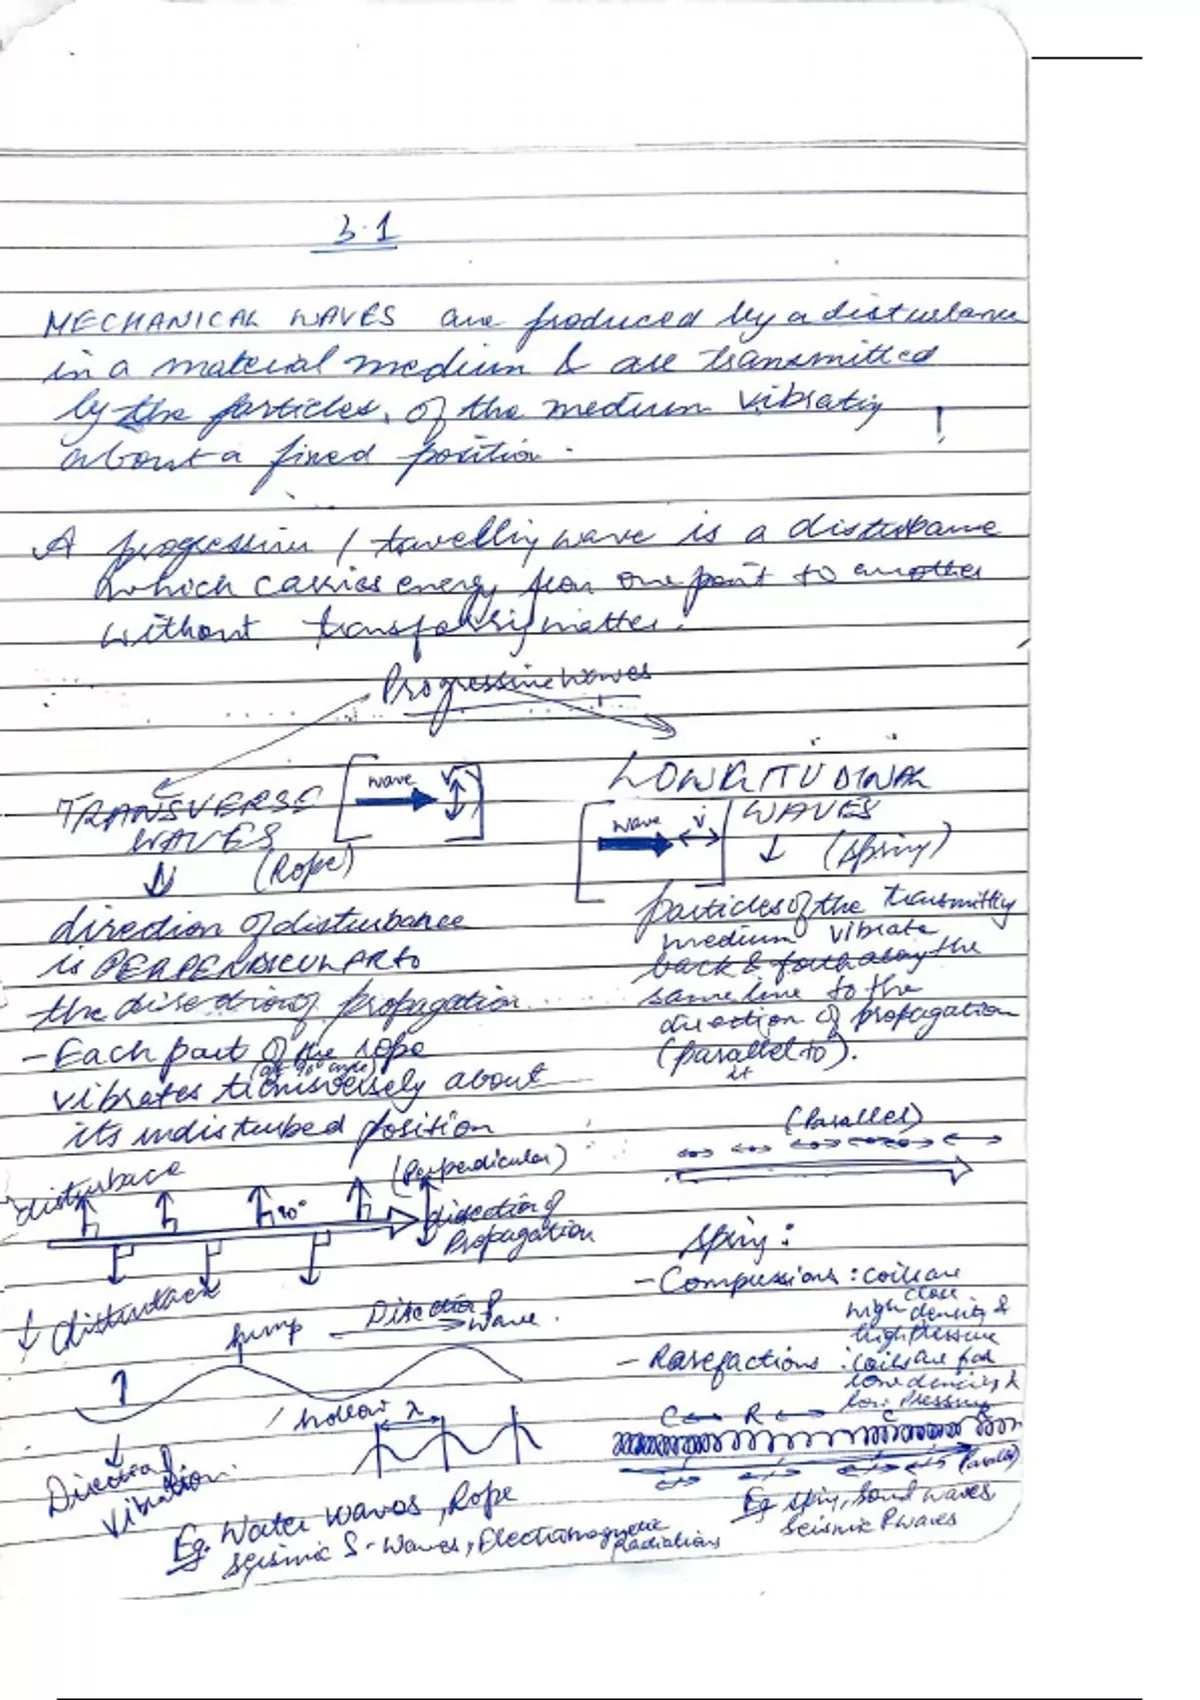 3.1
MECHANICAL WAVES are produced by a disturbance
in a material medium & are transmitted
by the particles, of the medium vibrating
about a fixed position.
A progressive / travelling wave is a disturbance
which carries energy from one point to another
without transferring matter.
Progressive waves
TRANSVERSE
WAVES
(Rope)
wave V
direction of disturbance
is PERPENDICULAR to
the direction of propagation
- Each part of the rope
(at 90° angle)
vibrates transversely about
its undisturbed position
disturbace
(Perpendicular)
90°
direction of
Propagation
disturbace
hump
Direction of
wave.
hollow λ
Direction of
vibration.
Eg. Water waves, Rope
seismic S-waves, Electromagnetic
Radiations
LONGITUDINAL
WAVES
(spring)
wave V
particles of the transmitting
medium vibrate
back & forth along the
same line to the
direction of propagation
(parallel to).
it
(Parallel)
Spring:
- Compressions : coils are
close
high density &
high pressure
- Rarefactions : coils are far
low density &
low pressure
C R C R
(Parallel)
Eg spring, sound waves
seismic P waves